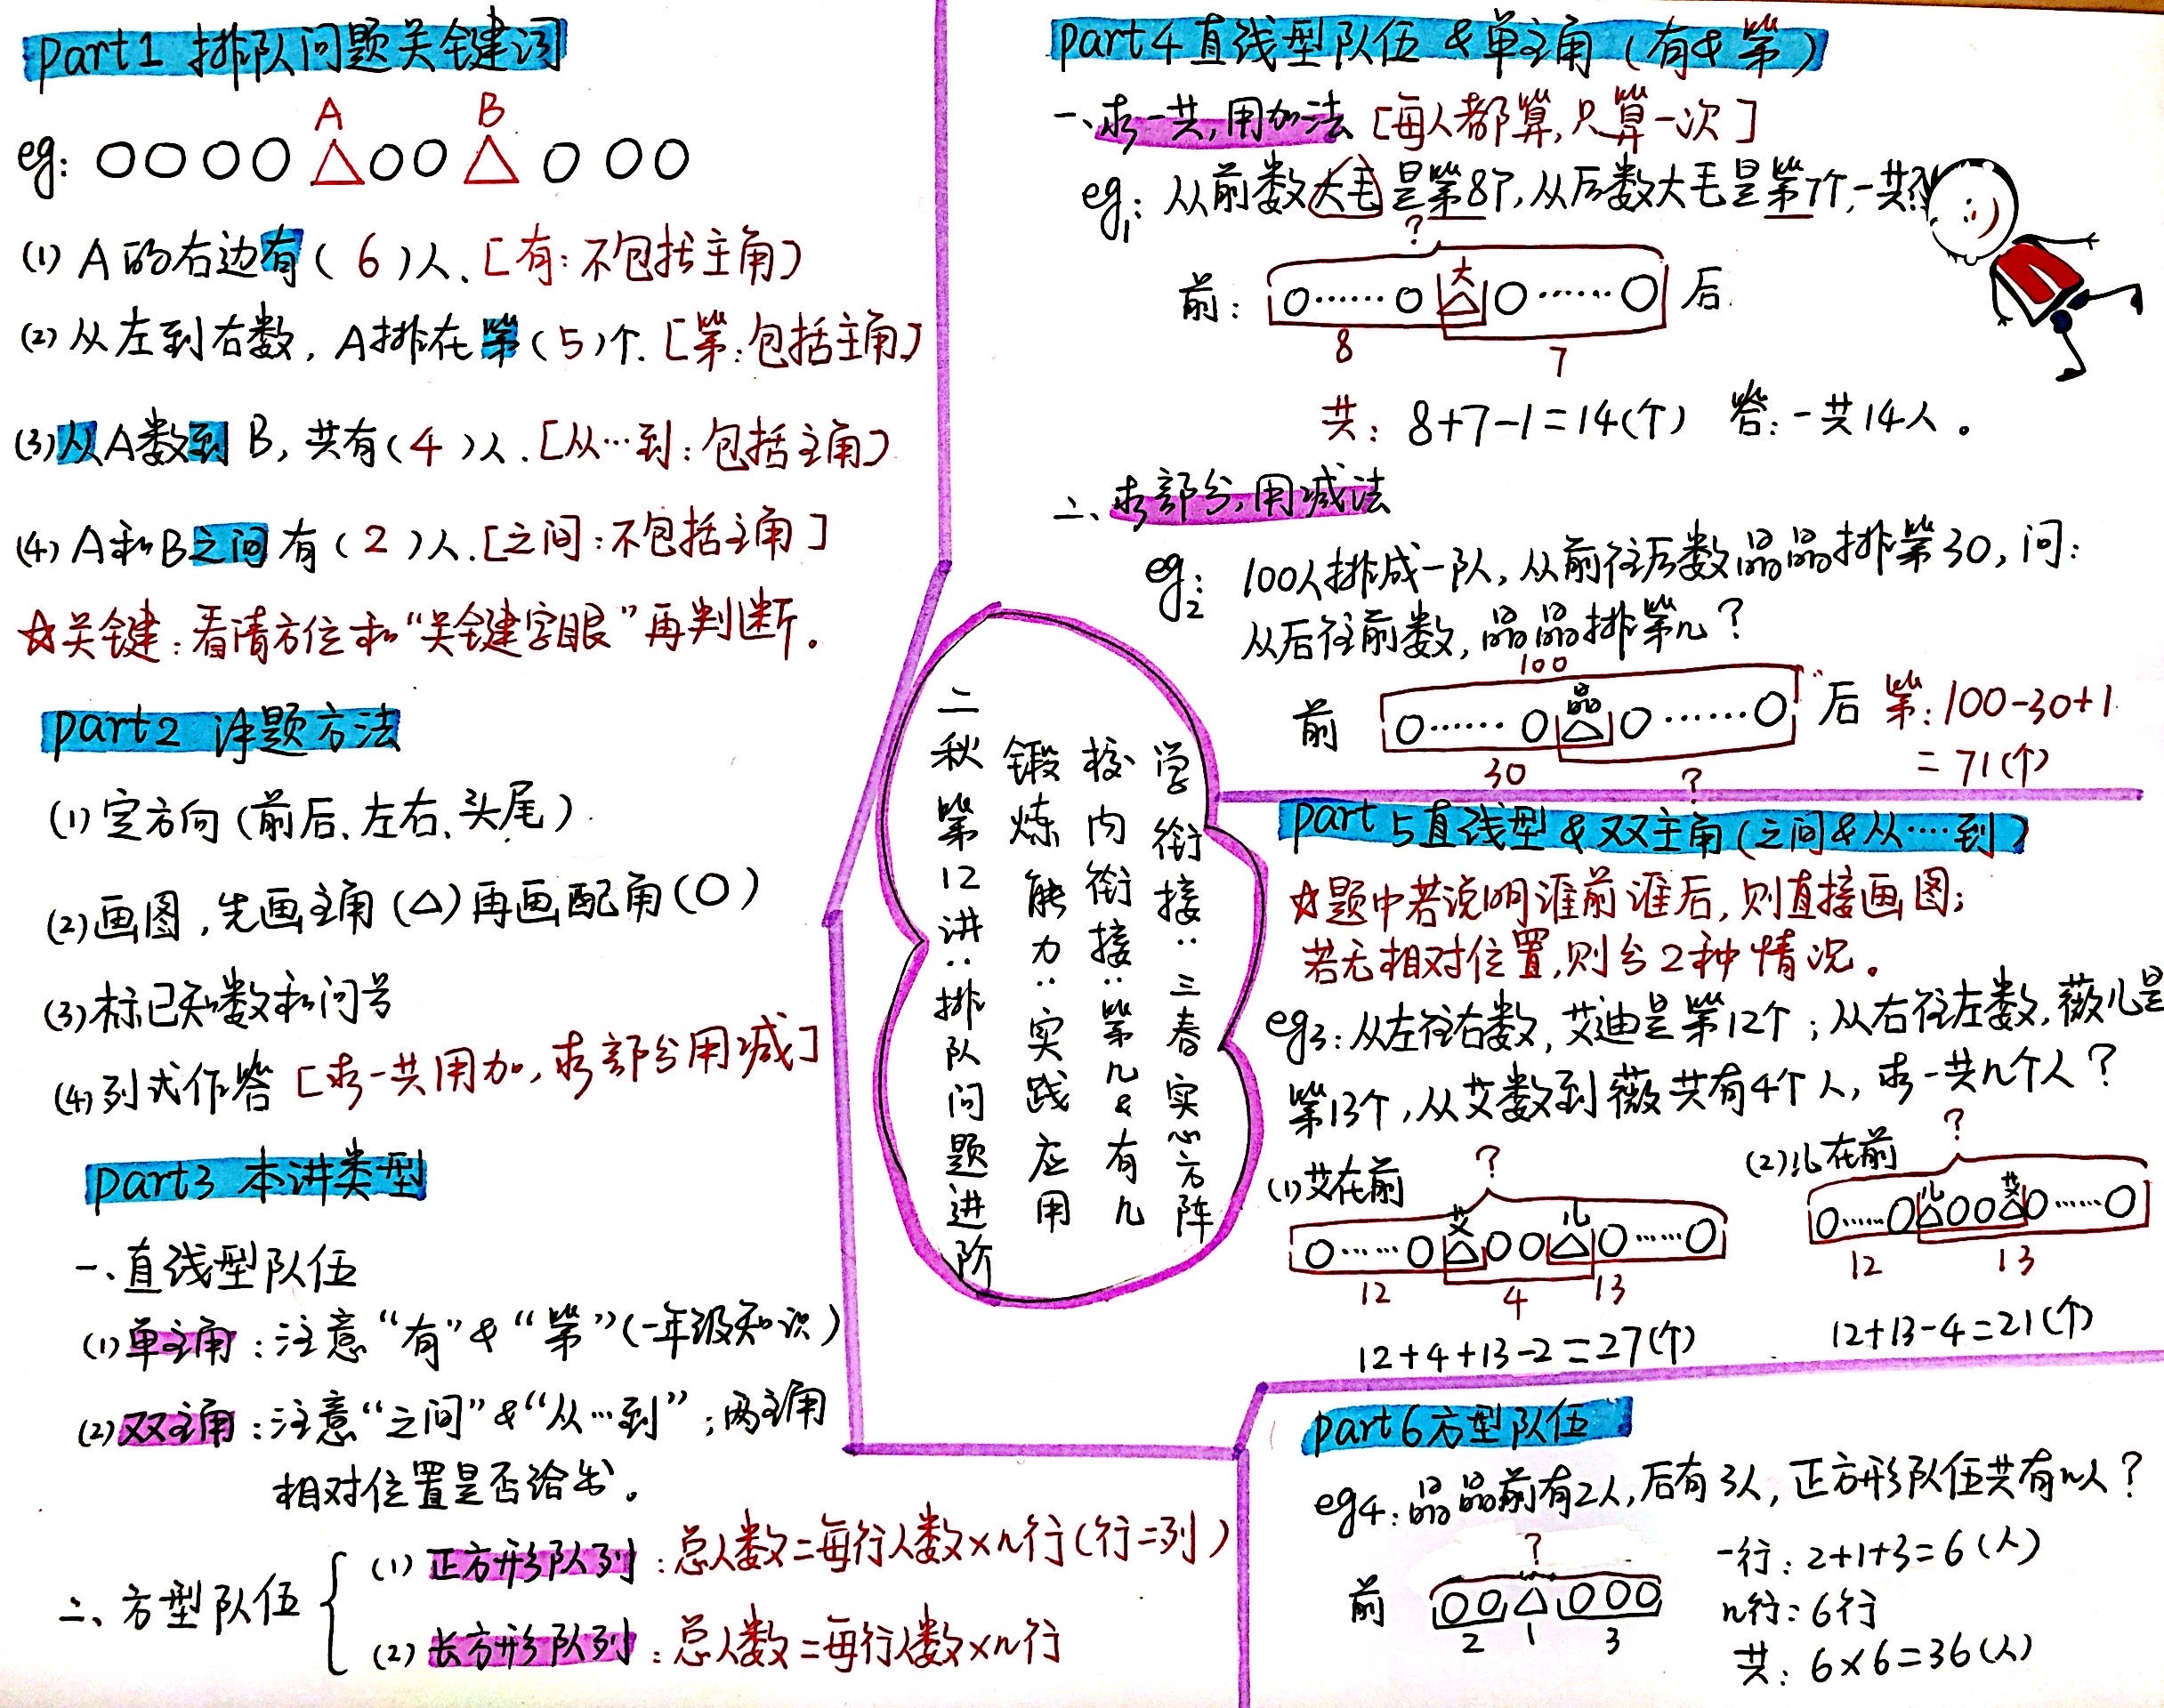 part1 排队问题关键词
A B
eg: ○○○○△○○△○○○
(1) A的右边有(6)人.[有:不包括主角]
(2) 从左到右数,A排在第(5)个.[第:包括主角]
(3) 从A数到B,共有(4)人.[从…到:包括主角]
(4) A和B之间有(2)人.[之间:不包括主角]
☆关键:看清方位和“关键字眼”再判断。
part2 讲题方法
(1) 定方向(前后、左右、头尾)
(2) 画图,先画主角(△)再画配角(○)
(3) 标已知数和问号
(4) 列式作答[求一共用加,求部分用减]
part3 本讲类型
一、直线型队伍
(1) 单主角:注意“有”&“第”(一年级知识)
(2) 双主角:注意“之间”&“从…到”;两主角
相对位置是否给出。
二、方型队伍
(1) 正方形队列:总人数=每行人数×n行(行=列)
(2) 长方形队列:总人数=每行人数×n行
二秋第12讲:排队问题进阶
锻炼能力:实践应用
校内衔接:第几&有几
学衔接:三春实心方阵
part4 直线型队伍&单主角(有&第)
一、求一共,用加法[每人都算,只算一次]
eg1:从前数大毛是第8个,从后数大毛是第7个,一共?
?
前: ○……○ 大 △ ○……○ 后
8 7
共:8+7-1=14(个) 答:一共14人。
二、求部分,用减法
eg2: 100人排成一队,从前往后数晶晶排第30,问:
从后往前数,晶晶排第几?
100
前 ○……○ 晶 △ ○……○ 后 第:100-30+1
30 ? =71(个)
part5 直线型&双主角(之间&从……到)
☆题中若说明谁前谁后,则直接画图;
若无相对位置,则分2种情况。
eg3:从左往右数,艾迪是第12个;从右往左数,薇儿是
第13个,从艾数到薇共有4个人,求一共几个人?
(1) 艾在前 ?
○……○ 艾 △○○ 儿 △○……○
12 4 13
12+4+13-2=27(个)
(2) 儿在前 ?
○……○ 儿 △○○ 艾 △○……○
12 13
12+13-4=21(个)
part6 方型队伍
eg4:晶晶前有2人,后有3人,正方形队伍共有几人?
?
前 ○○△○○○
2 1 3
一行:2+1+3=6(人)
几行:6行
共:6×6=36(人)